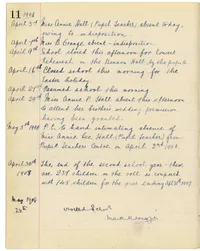 11 1908
April 3rd Miss Annie Hall (Pupil Teacher) absent today
owing to indisposition.
April 7th Miss B. George absent - indisposition.
April 9th School closed this afternoon for Concert
rehearsal in the Roman Hall by the pupils
April 16th Closed school this morning for the
Easter holiday
April 27th Resumed school this morning
April 29th Miss Annie P. Hall absent this afternoon
to attend her brother's wedding, permission
having been granted.
May 5th 1908 P.C. to hand intimating absence of
Miss Annie Hall (Pupil Teacher) from
Pupil Teachers Centre on April 2nd 1908.
April 30th The end of the second school year - there
1908 are 238 children on the roll as compared
with 245 children for the year ending April 30th 1907
May 1908 Visited School
28th